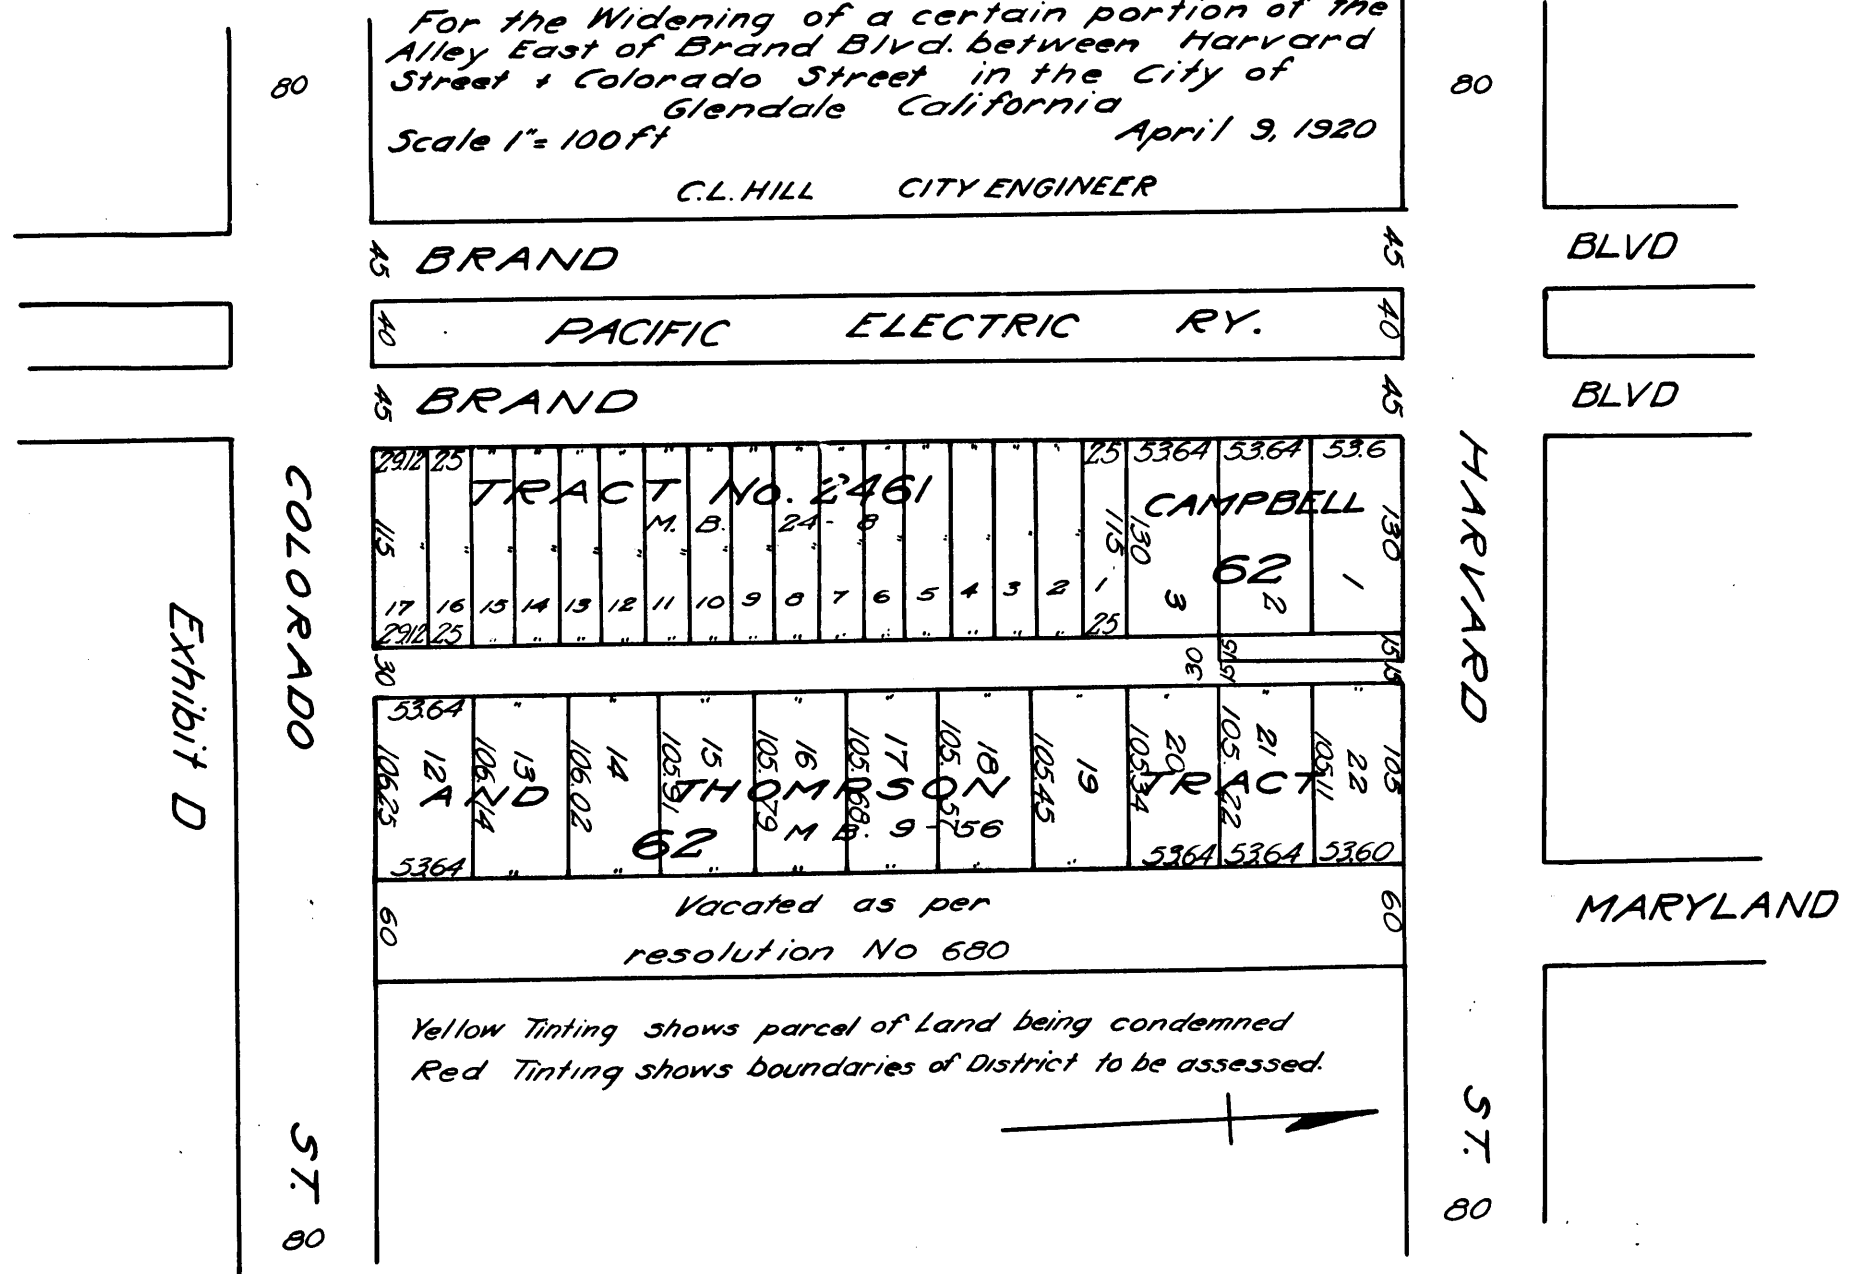 For the Widening of a certain portion of the
Alley East of Brand Blvd. between Harvard
Street + Colorado Street in the City of
Glendale California
Scale 1"= 100ft April 9, 1920
C.L. HILL CITY ENGINEER
80
80
45 BRAND 45 BLVD
40 PACIFIC ELECTRIC RY. 40
45 BRAND 45 BLVD
COLORADO
ST. 80
HARVARD
ST. 80
Exhibit D
29.12 25 " " " " " " " " " " " " " " 25 53.64 53.64 53.6
TRACT No. 2461
M. B. 24 - 8
CAMPBELL
115 " " " " " " " " " " " " " " " 115 130 130
62
17 16 15 14 13 12 11 10 9 8 7 6 5 4 3 2 1 3 2 1
29.12 25 " " " " " " " " " " " " " " 25
30 30 15 15 15 15
53.64 " " " " " " " " " "
12 13 14 15 16 17 18 19 20 21 22
106.25 106.14 106.02 105.91 105.79 105.68 105.57 105.45 105.34 105.22 105.11 105
AND THOMPSON TRACT
62 M B. 9 - 56
53.64 " " " " " 53.64 53.64 53.60
60 Vacated as per 60
resolution No 680
MARYLAND
Yellow Tinting shows parcel of Land being condemned
Red Tinting shows boundaries of District to be assessed.